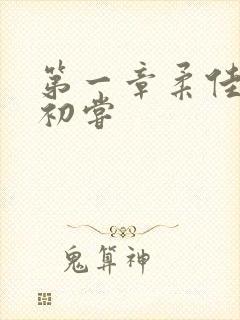 第一章柔佳
初尝
鬼算神